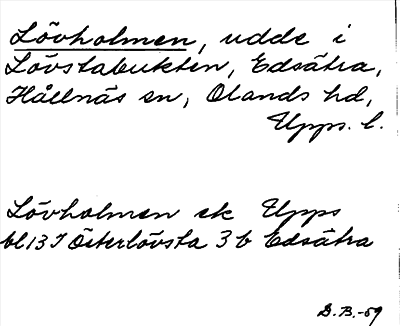 Lövholmen, udde i
Lövstabukten, Edsätra,
Hållnäs sn, Olands hd,
Upps. l.
Lövholmen ek Upps
bl 13 I Österlövsta 3 b Edsätra
D.B.-59